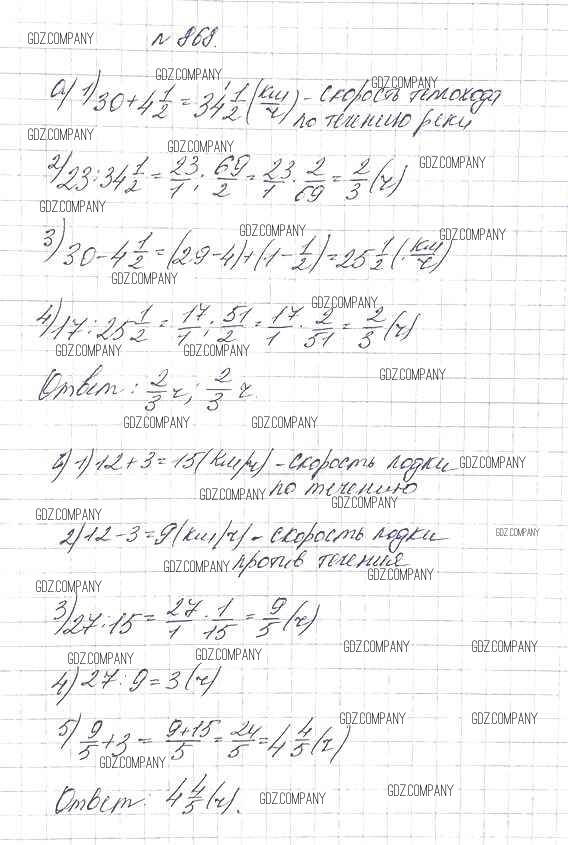 GDZ.COMPANY № 868.
GDZ.COMPANY GDZ.COMPANY
а) 1) 30 + 4 1/2 = 34 1/2 (км/ч) - скорость теплохода
по течению реки
GDZ.COMPANY GDZ.COMPANY GDZ.COMPANY
2) 23 : 34 1/2 = 23/1 : 69/2 = 23/1 · 2/69 = 2/3 (ч)
GDZ.COMPANY GDZ.COMPANY GDZ.COMPANY
3) 30 - 4 1/2 = (29 - 4) + (1 - 1/2) = 25 1/2 (км/ч)
GDZ.COMPANY GDZ.COMPANY
4) 17 : 25 1/2 = 17/1 : 51/2 = 17/1 · 2/51 = 2/3 (ч)
GDZ.COMPANY GDZ.COMPANY GDZ.COMPANY
Ответ: 2/3 ч; 2/3 ч.
GDZ.COMPANY GDZ.COMPANY
б) 1) 12 + 3 = 15 (км/ч) - скорость лодки GDZ.COMPANY
GDZ.COMPANY по течению
GDZ.COMPANY GDZ.COMPANY
2) 12 - 3 = 9 (км/ч) - скорость лодки GDZ.COMPANY
GDZ.COMPANY против течения
GDZ.COMPANY GDZ.COMPANY
3) 27 : 15 = 27/1 · 1/15 = 9/5 (ч)
GDZ.COMPANY GDZ.COMPANY GDZ.COMPANY GDZ.COMPANY
4) 27 : 9 = 3 (ч)
GDZ.COMPANY GDZ.COMPANY
5) 9/5 + 3 = 9+15/5 = 24/5 = 4 4/5 (ч)
GDZ.COMPANY
Ответ: 4 4/5 (ч). GDZ.COMPANY GDZ.COMPANY